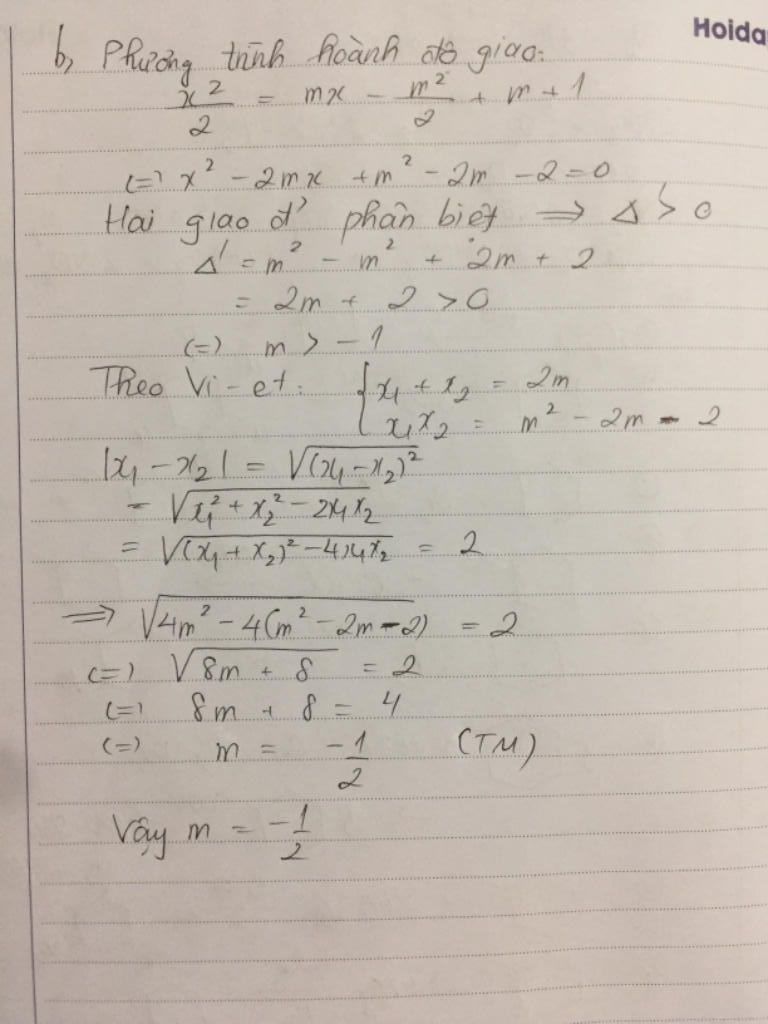 Hoida
b, Phương trình hoành độ giao:
x²/2 = mx - m²/2 + m + 1
(=) x² - 2mx + m² - 2m - 2 = 0
Hai giao đ' phân biệt => Δ' > 0
Δ' = m² - m² + 2m + 2
= 2m + 2 > 0
(=) m > -1
Theo Vi-et: { x₁ + x₂ = 2m
x₁x₂ = m² - 2m - 2
|x₁ - x₂| = √(x₁-x₂)²
= √x₁² + x₂² - 2x₁x₂
= √(x₁ + x₂)² - 4x₁x₂ = 2
=> √4m² - 4(m² - 2m - 2) = 2
(=) √8m + 8 = 2
(=) 8m + 8 = 4
(=) m = -1/2 (TM)
Vậy m = -1/2